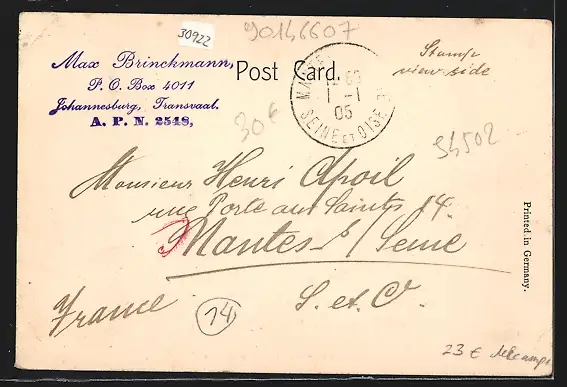 30922
90146607
Max Brinckmann,
P. O. Box 4011
Johannesburg, Transvaal.
A. P. N. 2548,
Post Card.
Stamp
view side
1 - 1
05
SEINE ET OISE
30€
94502
Monsieur Henri Apoil
rue Porte aux Saints 14.
Mantes s/Seine
S. et O.
France
14
Printed in Germany.
23 € delcampe